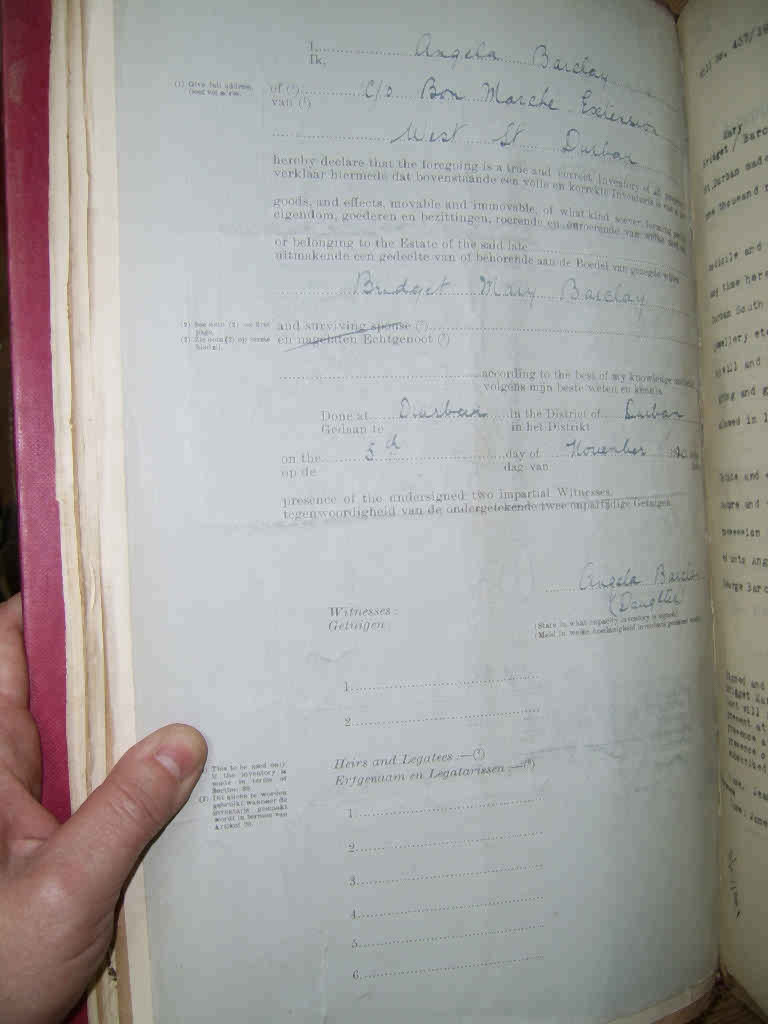 I, Angela Barclay
Ik,
(1) Give full address.
of (1) C/o Bon Marche Extension
van (1)
West St Durban
hereby declare that the foregoing is a true and correct Inventory of all
verklaar hiermede dat bovenstaande een volle en korrekte Inventaris is van
goods, and effects, movable and immovable, of what kind soever forming
eigendom, goederen en bezittingen, roerende en onroerende van
or belonging to the Estate of the said late
uitmakende een gedeelte van of behorende aan de Boedel van gezegde wijlen
Bridget Mary Barclay
(2) See note (2) on first page.
(2) Zie nota (2) op eerste
and surviving spouse (2)
en nagelaten Echtgenoot (2)
according to the best of my knowledge
volgens mijn beste weten en kennis
Done at Durban in the District of Durban
Gedaan te in het Distrikt
on the 5th day of November
op de dag van
presence of the undersigned two impartial Witnesses.
tegenwoordigheid van de ondergetekende twee onpartijdige Getuigen.
Angela Barclay
(Daughter)
Witnesses :
Getuigen :
(State in what capacity inventory is signed)
(Meld in welke hoedanigheid inventaris getekend
1.
2.
Heirs and Legatees :—(3)
Erfgenaam en Legatarissen :—(3)
This to be used only
if the inventory is
made in terms of
Section
(3) Dit alleen te worden
gebruikt wanneer de
inventaris gemaakt
wordt in termen van
Artikel
1.
2.
3.
4.
5.
6.
Mary
Bridget / Barc
St. Durban made
One Thousand
domicile and
any time here
Durban South
jewellery etc
and
and
allowed in
and
and
possession
unto Ang
George Barc
Signed and
Bridget Mar
will
present at
presence
presence o
subscribed